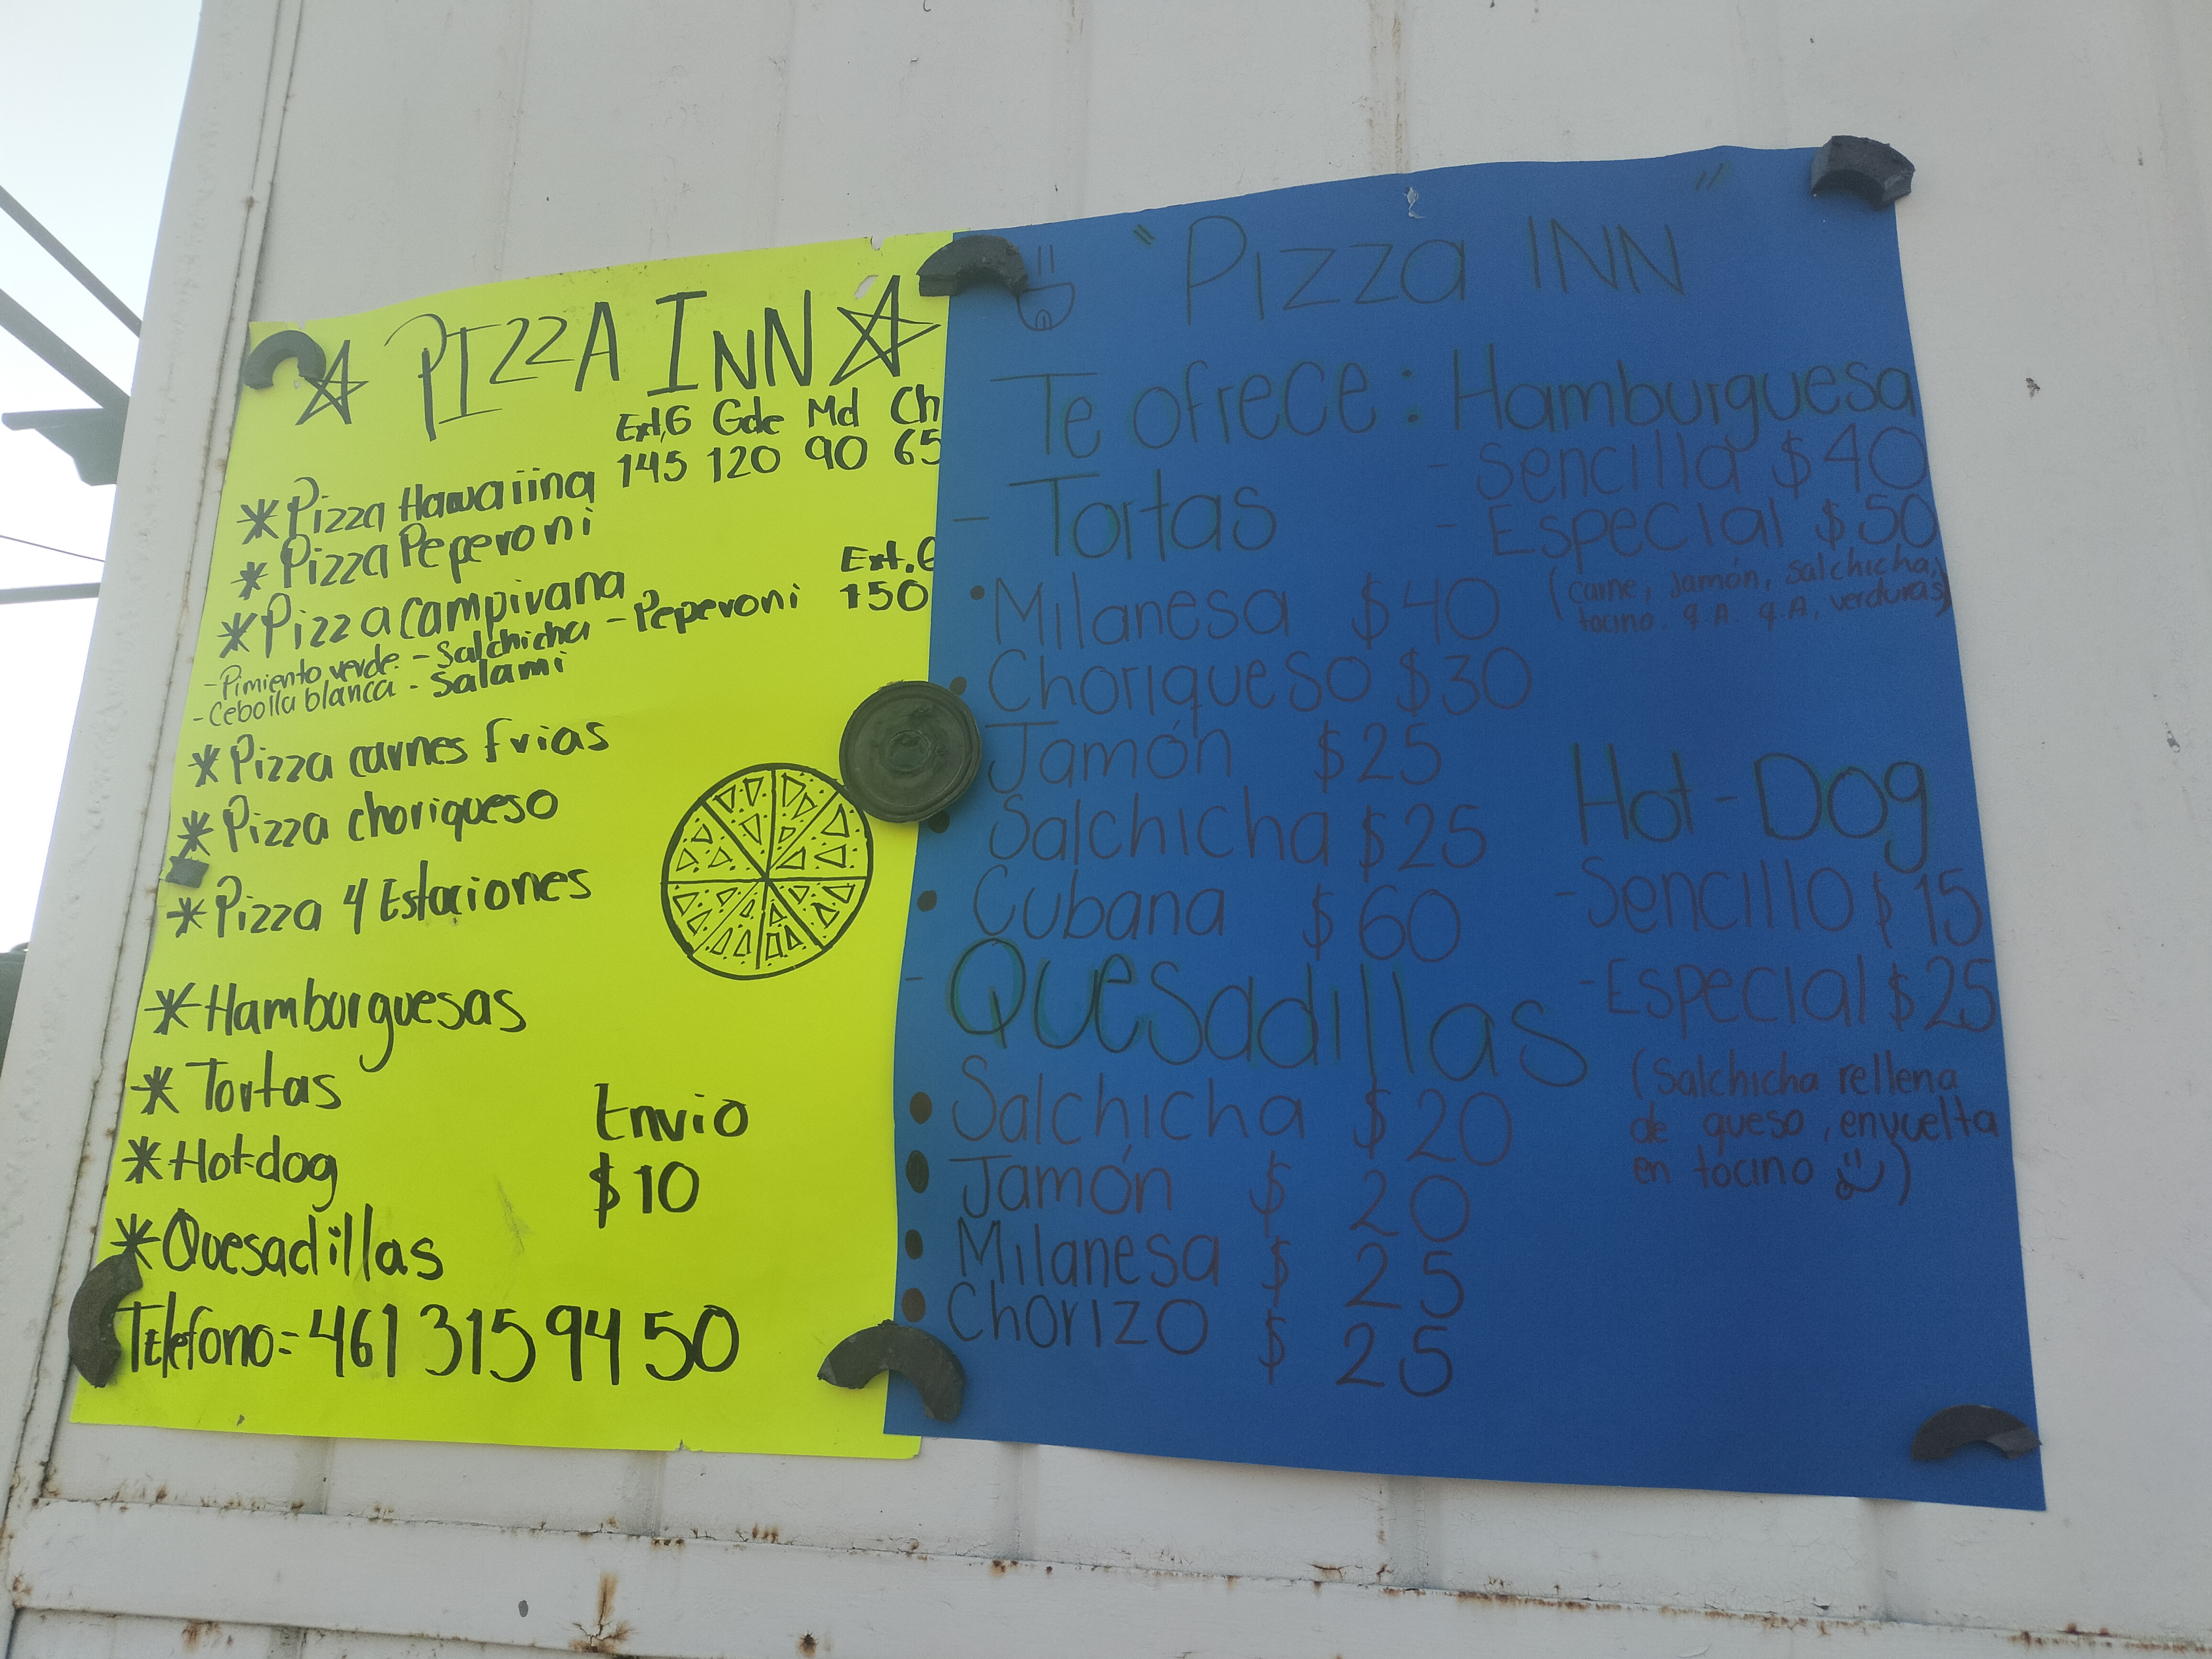 PIZZA INN
Ext,G Gde Md Ch
145 120 90 65
* Pizza Hawaiina
* Pizza Peperoni
* Pizza campirana
Ext.G
150
-Pimiento verde - Salchicha - Peperoni
-Cebolla blanca - Salami
* Pizza carnes frias
* Pizza choriqueso
* Pizza 4 Estaciones
* Hamburguesas
* Tortas
* Hotdog
* Quesadillas
Envio
$10
Telefono=461 315 94 50
"Pizza INN"
Te ofrece: Hamburguesa
- Sencilla $40
- Especial $50
(carne, jamón, salchicha,
tocino. q.A. q.A, verduras)
- Tortas
• Milanesa $40
• Choriqueso $30
Jamón $25
• Salchicha $25
• Cubana $60
Hot-Dog
-Sencillo $15
-Especial $25
(Salchicha rellena
de queso, envuelta
en tocino )
- Quesadillas
• Salchicha $20
• Jamón $20
• Milanesa $25
• Chorizo $25